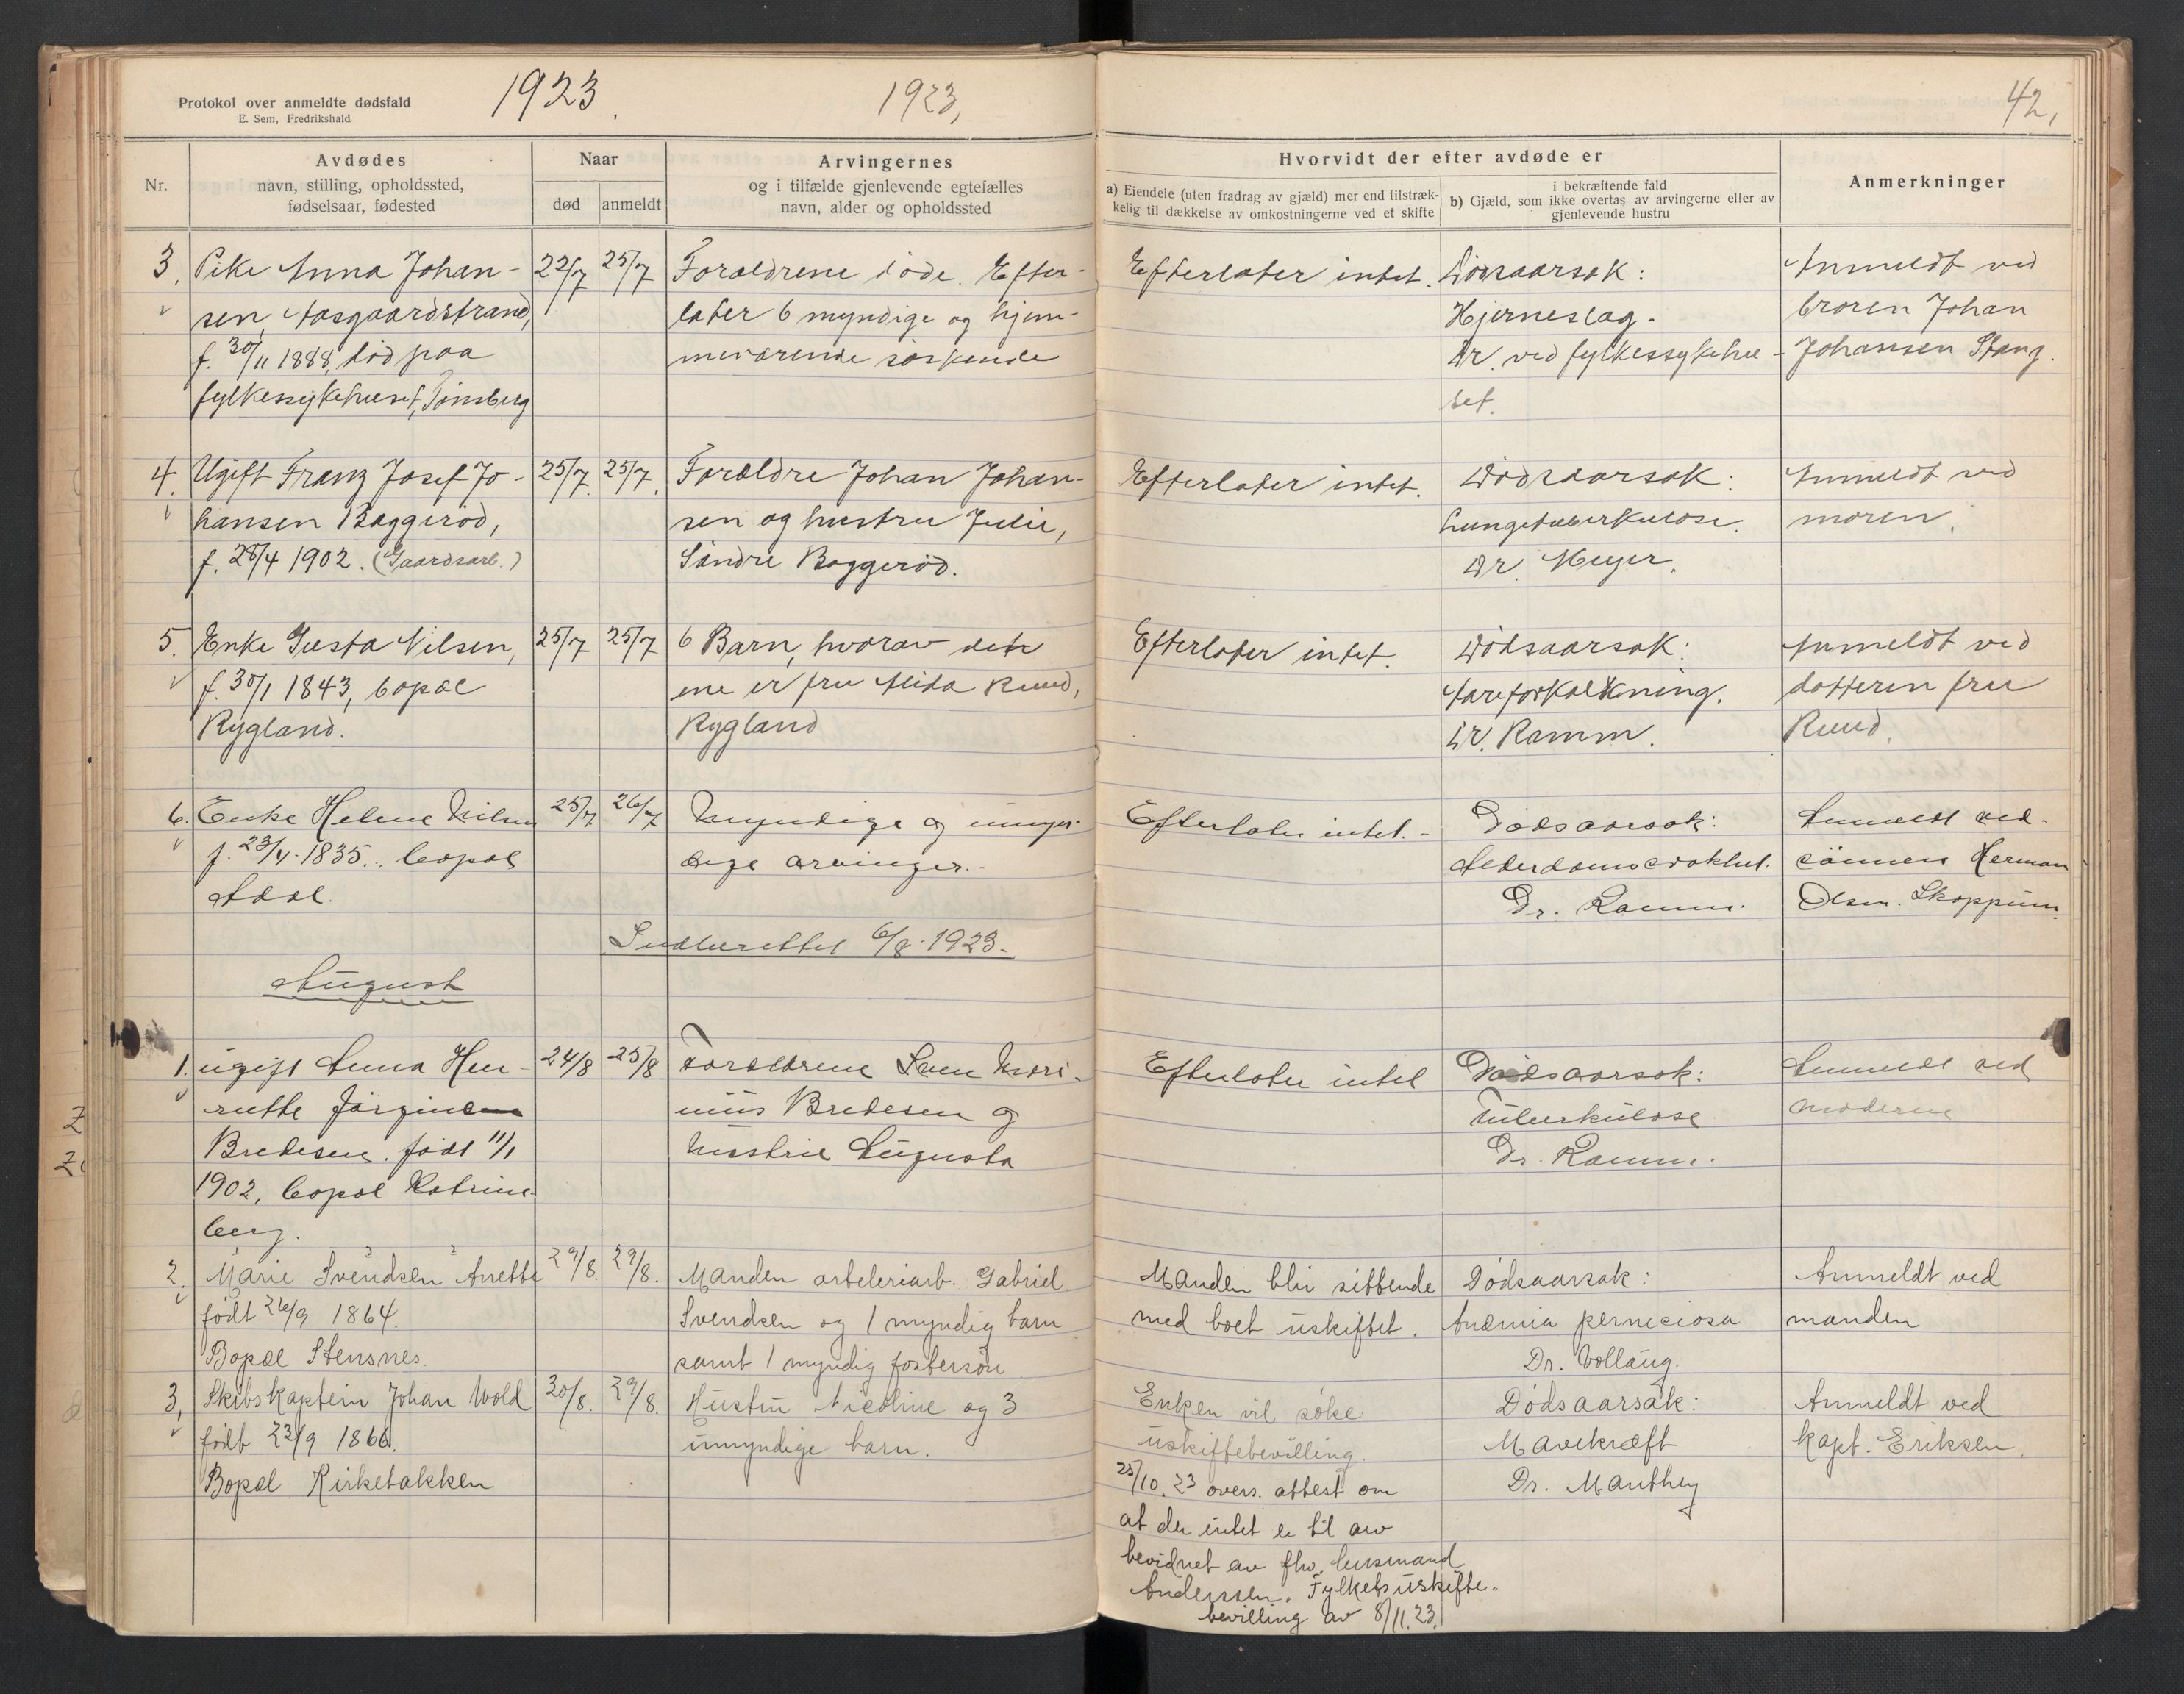 Protokol over anmeldte dødsfald
E. Sem, Fredrikshald
1923.
1923,
42,
Nr.
Avdødes
navn, stilling, opholdssted,
fødselsaar, fødested
Naar
død
anmeldt
Arvingernes
og i tilfælde gjenlevende egtefælles
navn, alder og opholdssted
Hvorvidt der efter avdøde er
a) Eiendele (uten fradrag av gjæld) mer end tilstræk-
kelig til dækkelse av omkostningerne ved et skifte
i bekræftende fald
b) Gjæld, som ikke overtas av arvingerne eller av
gjenlevende hustru
Anmerkninger
3. Pike Anna Johan-
sen, Aasgaardstrand,
f. 30/11 1888, død paa
fylkessykehuset, Tønsberg
22/7
25/7
Forældrene døde. Efter-
later 6 myndige og hjem-
meværende søskende
Efterlater intet.
Dødsaarsak:
Hjerneslag.
Dr. ved fylkessykehu-
set.
Anmeldt ved
broren Johan
Johansen Stang.
4. Ugift Franz Josef Jo-
hansen Baggerød,
f. 28/4 1902. (Gaardsarb.)
25/7.
25/7.
Forældre Johan Johan-
sen og hustru Julie,
Søndre Baggerød.
Efterlater intet.
Dødsaarsak:
Lungetuberkulose.
Dr. Meyer.
Anmeldt ved
moren.
5. Enke Gusta Nilsen,
f. 30/1 1843, bopæl
Rygland.
25/7
25/7
6 Barn, hvorav det
ene er fru Alida Ruud,
Rygland
Efterlater intet.
Dødsaarsak:
Aareforkalkning.
Dr. Ramm.
Anmeldt ved
datteren fru
Ruud.
6. Enke Helene Nilsen
f. 23/4. 1835. bopæl
Adal.
25/7
26/7
Myndige og umyn-
dige arvinger.-
Efterlater intet.-
Dødsaarsak:
Alderdomssvakhet.
Dr. Ramm.
Anmeldt ved.
sønnen Herman
Olsen. Skoppum.
Indberettet 6/8. 1923.-
August
1. ugift Anna Hen-
riette Jørgine
Bredesen. født 11/1
1902, bopæl Katrine-
berg.
24/8
25/8
Forældrene Sven Mari-
nius Bredesen og
hustru Augusta
Efterlater intet
Dødsaarsak:
Tuberkulose
Dr. Ramm.
Anmeldt ved
moderen
2. Marie Svendsen Anette
født 26/9 1864.
Bopæl Stensnes.
29/8.
29/8.
Manden arteleriarb. Gabriel
Svendsen og 1 myndig barn
samt 1 myndig fostersøn
Manden blir sittende
med boet uskiftet.
Dødsaarsak:
Anæmia perneciosa
Dr. Vollaug.
Anmeldt ved
manden
3, Skibskaptein Johan Wold
født 23/9 1866.
Bopæl Kirkebakken
20/8.
29/8.
Hustru Nicoline og 3
umyndige barn.
Enken vil søke
uskiftebevilling.
25/10.23 overs. attest om
at der intet er til arv
bevidnet av fhv. lensmand
Anderssen. Fylkets uskifte-
bevilling av 8/11.23.
Dødsaarsak:
Mavekræft
Dr. Manthey
Anmeldt ved
kapt. Eriksen.